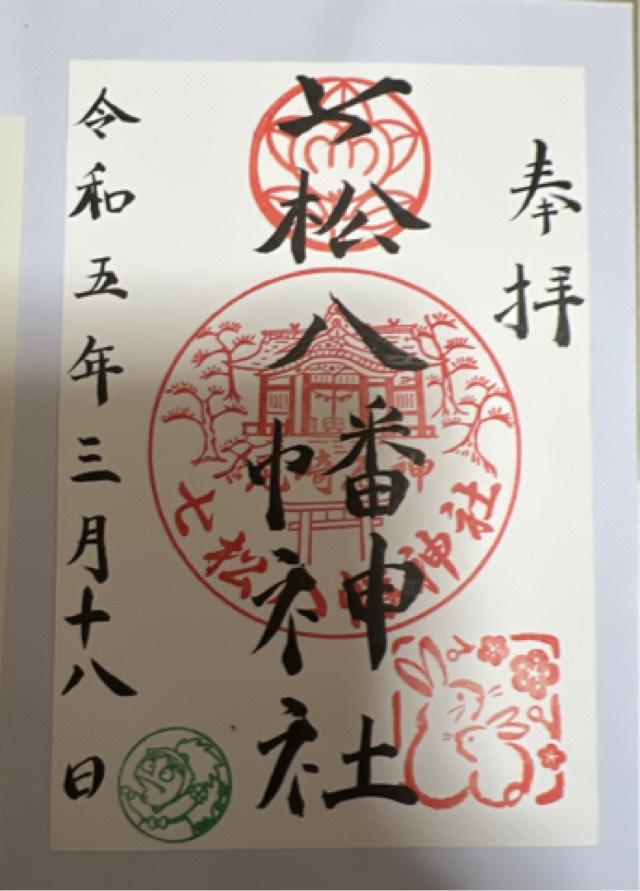 奉拝
七松八幡神社
七松八幡神社
令和五年三月十八日